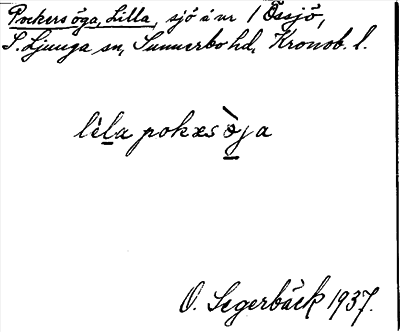 Pockers öga, Lilla, sjö å nr 1 Össjö,
S. Ljunga sn, Sunnerbo hd, Kronob. l.
lèla pokxs òja
O. Segerbäck 1937.